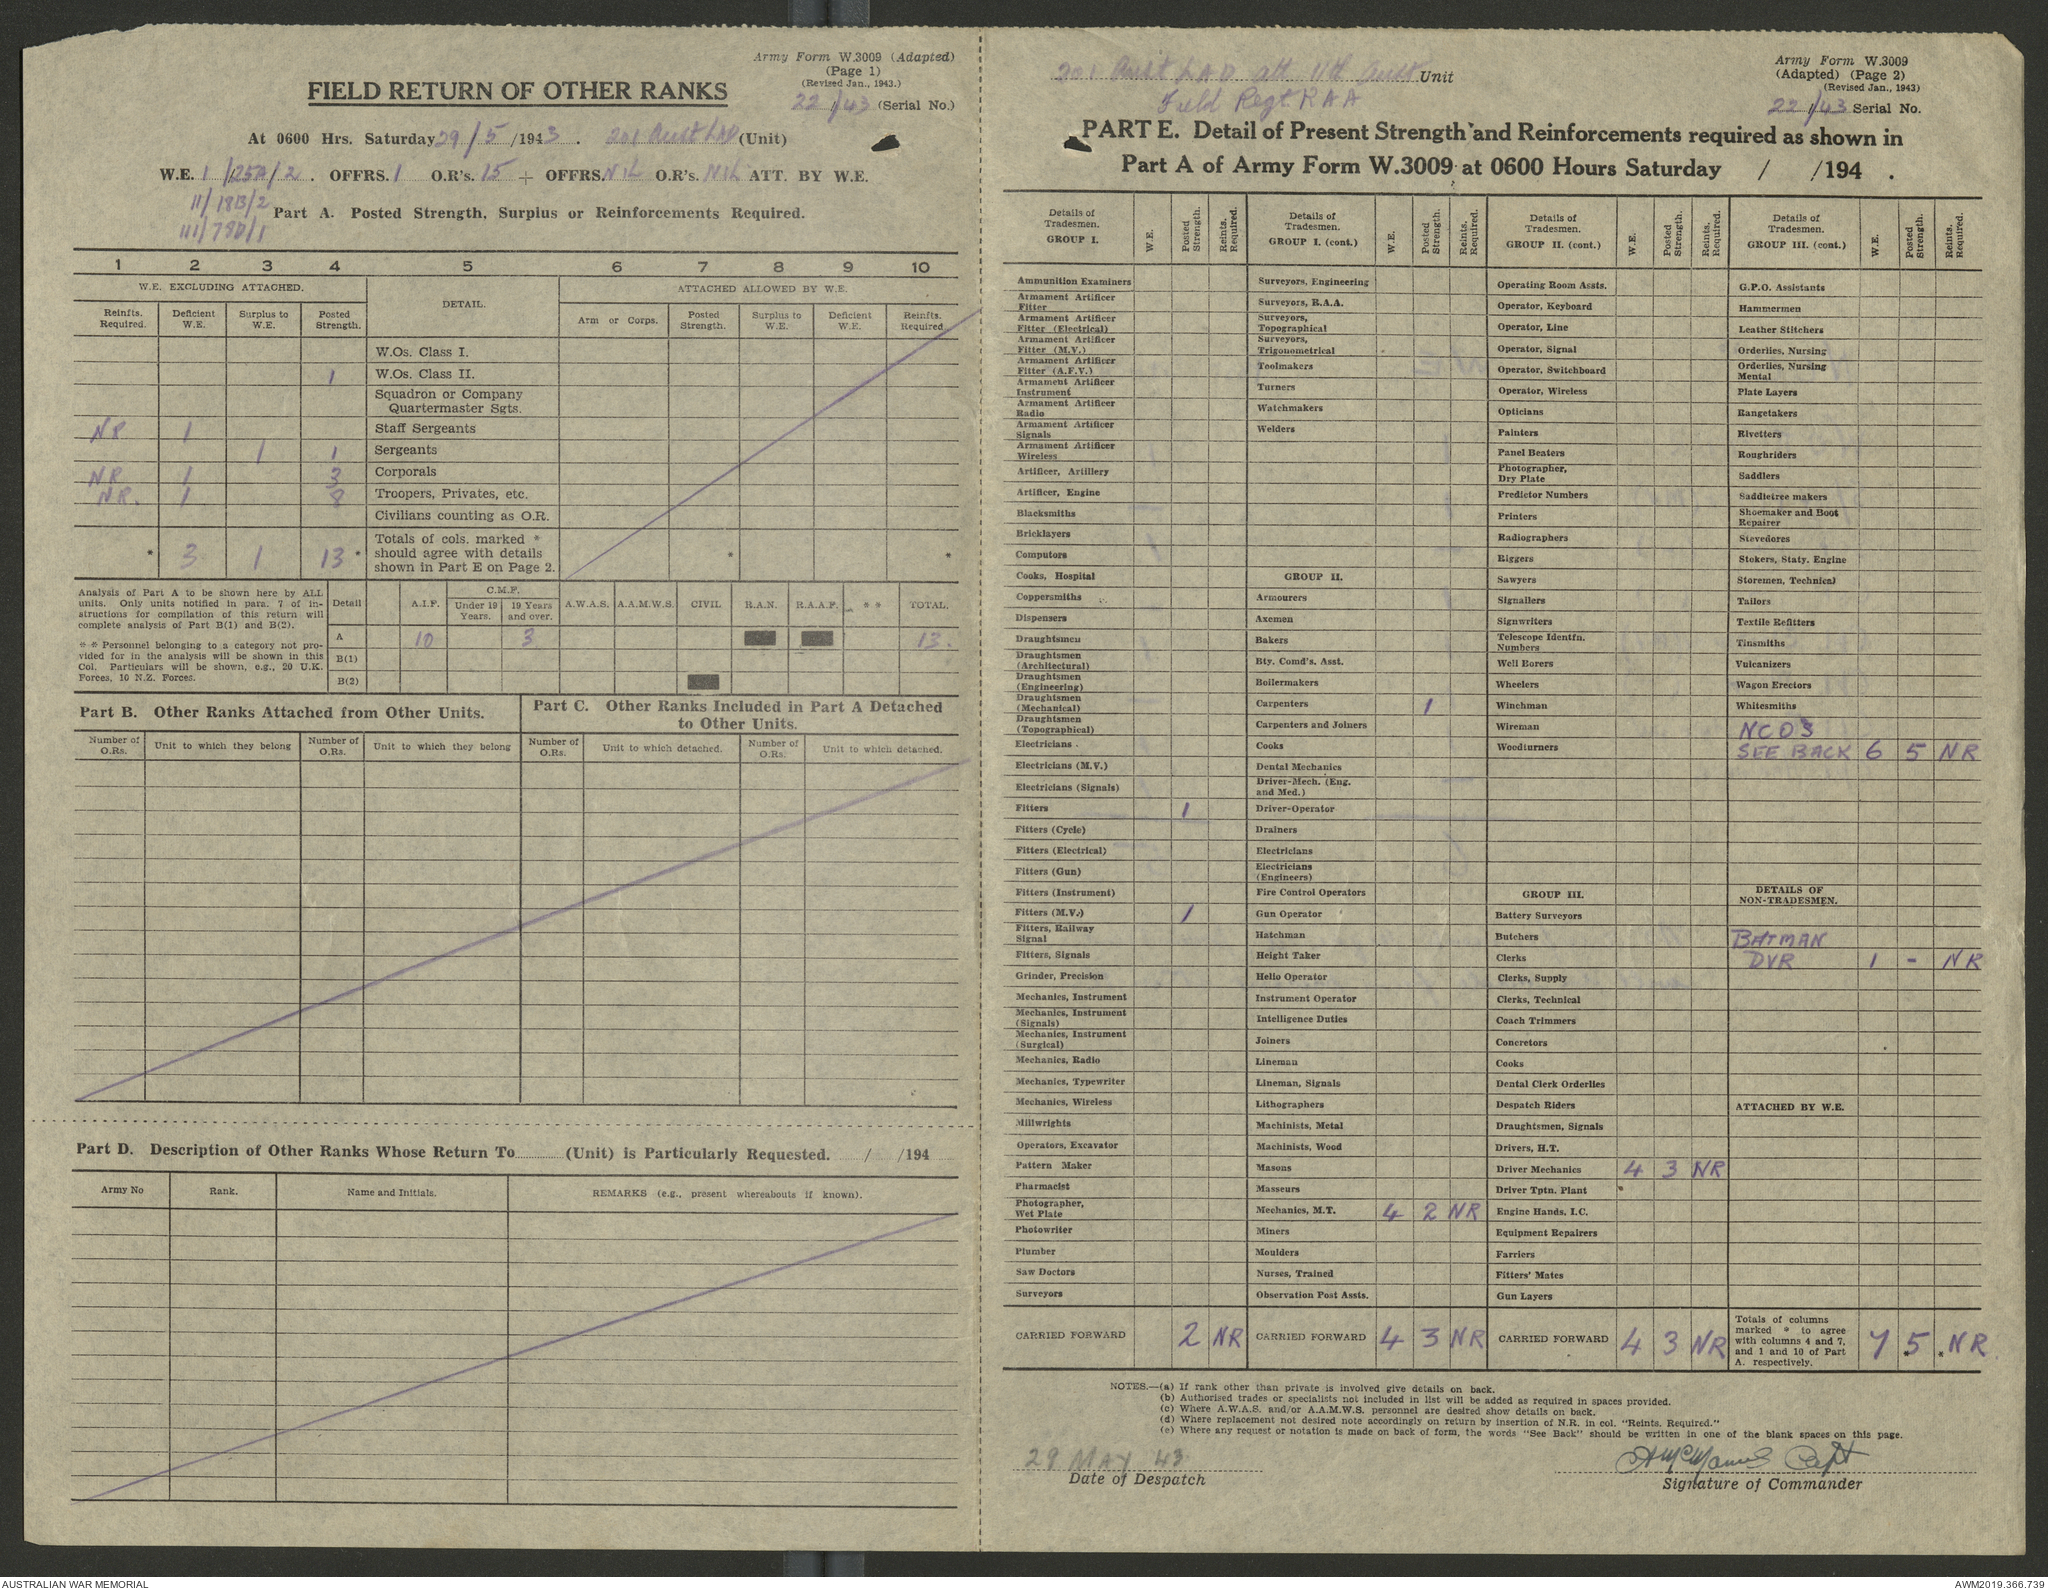 Army Form W.3009 (Adapted)
(Page 1)
(Revised Jan., 1943.)
FIELD RETURN OF OTHER RANKS
22/43 (Serial No.)
At 0600 Hrs. Saturday 29/5/1943. 201 Aust LAD (Unit)
W.E. 1/25A/2. OFFRS. 1 O.R's. 15 + OFFRS. NIL O.R's. NIL ATT. BY W.E.
11/18B/2
111/78D/1
Part A. Posted Strength, Surplus or Reinforcements Required.
1 2 3 4 5 6 7 8 9 10
W.E. EXCLUDING ATTACHED. DETAIL. ATTACHED ALLOWED BY W.E.
Reinfts. Required. Deficient W.E. Surplus to W.E. Posted Strength. Arm or Corps. Posted Strength. Surplus to W.E. Deficient W.E. Reinfts. Required
W.Os. Class I.
1 W.Os. Class II.
Squadron or Company
Quartermaster Sgts.
NR 1 Staff Sergeants
1 1 Sergeants
NR 1 3 Corporals
NR. 1 8 Troopers, Privates, etc.
Civilians counting as O.R.
* 3 1 13 * Totals of cols. marked * should agree with details shown in Part E on Page 2. * *
Analysis of Part A to be shown here by ALL
units. Only units notified in para. 7 of in-
structions for compilation of this return will
complete analysis of Part B(1) and B(2).
* * Personnel belonging to a category not pro-
vided for in the analysis will be shown in this
Col. Particulars will be shown, e.g., 20 U.K.
Forces, 10 N.Z. Forces.
Detail A.I.F. C.M.F. Under 19 Years. 19 Years and over. A.W.A.S. A.A.M.W.S. CIVIL R.A.N. R.A.A.F. * * TOTAL.
A 10 3 13.
B(1)
B(2)
Part B. Other Ranks Attached from Other Units.
Number of O.Rs. Unit to which they belong Number of O.Rs. Unit to which they belong
Part C. Other Ranks Included in Part A Detached
to Other Units.
Number of O.Rs. Unit to which detached. Number of O.Rs. Unit to which detached.
Part D. Description of Other Ranks Whose Return To (Unit) is Particularly Requested. / /194
Army No Rank. Name and Initials. REMARKS (e.g., present whereabouts if known).
201 Aust LAD att 11th Aust Unit
Field Regt RAA
Army Form W.3009
(Adapted) (Page 2)
(Revised Jan., 1943)
22/43 Serial No.
PART E. Detail of Present Strength and Reinforcements required as shown in
Part A of Army Form W.3009 at 0600 Hours Saturday / /194 .
Details of Tradesmen. GROUP I. W.E. Posted Strength. Reints. Required.
Ammunition Examiners
Armament Artificer Fitter
Armament Artificer Fitter (Electrical)
Armament Artificer Fitter (M.V.)
Armament Artificer Fitter (A.F.V.)
Armament Artificer Instrument
Armament Artificer Radio
Armament Artificer Signals
Armament Artificer Wireless
Artificer, Artillery
Artificer, Engine
Blacksmiths
Bricklayers
Computors
Cooks, Hospital
Coppersmiths
Dispensers
Draughtsmen
Draughtsmen (Architectural)
Draughtsmen (Engineering)
Draughtsmen (Mechanical)
Draughtsmen (Topographical)
Electricians
Electricians (M.V.)
Electricians (Signals)
Fitters 1
Fitters (Cycle)
Fitters (Electrical)
Fitters (Gun)
Fitters (Instrument)
Fitters (M.V.) 1
Fitters, Railway Signal
Fitters, Signals
Grinder, Precision
Mechanics, Instrument
Mechanics, Instrument (Signals)
Mechanics, Instrument (Surgical)
Mechanics, Radio
Mechanics, Typewriter
Mechanics, Wireless
Millwrights
Operators, Excavator
Pattern Maker
Pharmacist
Photographer, Wet Plate
Photowriter
Plumber
Saw Doctors
Surveyors
CARRIED FORWARD 2 NR
Details of Tradesmen. GROUP I. (cont.) W.E. Posted Strength. Reints. Required.
Surveyors, Engineering
Surveyors, R.A.A.
Surveyors, Topographical
Surveyors, Trigonometrical
Toolmakers
Turners
Watchmakers
Welders
GROUP II.
Armourers
Axemen
Bakers
Bty. Comd's. Asst.
Boilermakers
Carpenters 1
Carpenters and Joiners
Cooks
Dental Mechanics
Driver-Mech. (Eng. and Med.)
Driver-Operator
Drainers
Electricians
Electricians (Engineers)
Fire Control Operators
Gun Operator
Hatchman
Height Taker
Helio Operator
Instrument Operator
Intelligence Duties
Joiners
Lineman
Lineman, Signals
Lithographers
Machinists, Metal
Machinists, Wood
Masons
Masseurs
Mechanics, M.T. 4 2 NR
Miners
Moulders
Nurses, Trained
Observation Post Assts.
CARRIED FORWARD 4 3 NR
Details of Tradesmen. GROUP II. (cont.) W.E. Posted Strength. Reints. Required.
Operating Room Assts.
Operator, Keyboard
Operator, Line
Operator, Signal
Operator, Switchboard
Operator, Wireless
Opticians
Painters
Panel Beaters
Photographer, Dry Plate
Predictor Numbers
Printers
Radiographers
Riggers
Sawyers
Signallers
Signwriters
Telescope Identfn. Numbers
Well Borers
Wheelers
Winchman
Wireman
Woodturners
GROUP III.
Battery Surveyors
Butchers
Clerks
Clerks, Supply
Clerks, Technical
Coach Trimmers
Concretors
Cooks
Dental Clerk Orderlies
Despatch Riders
Draughtsmen, Signals
Drivers, H.T.
Driver Mechanics 4 3 NR
Driver Tptn. Plant
Engine Hands, I.C.
Equipment Repairers
Farriers
Fitters' Mates
Gun Layers
CARRIED FORWARD 4 3 NR
Details of Tradesmen. GROUP III. (cont.) W.E. Posted Strength. Reints. Required.
G.P.O. Assistants
Hammermen
Leather Stitchers
Orderlies, Nursing
Orderlies, Nursing Mental
Plate Layers
Rangetakers
Rivetters
Roughriders
Saddlers
Saddletree makers
Shoemaker and Boot Repairer
Stevedores
Stokers, Staty. Engine
Storemen, Technical
Tailors
Textile Refitters
Tinsmiths
Vulcanizers
Wagon Erectors
Whitesmiths
NCOS
SEE BACK 6 5 NR
DETAILS OF NON-TRADESMEN.
BATMAN
DVR 1 - NR
ATTACHED BY W.E.
Totals of columns marked * to agree with columns 4 and 7, and 1 and 10 of Part A. respectively. 7 * 5 * NR
NOTES.—(a) If rank other than private is involved give details on back.
(b) Authorised trades or specialists not included in list will be added as required in spaces provided.
(c) Where A.W.A.S. and/or A.A.M.W.S. personnel are desired show details on back.
(d) Where replacement not desired note accordingly on return by insertion of N.R. in col. "Reints. Required."
(e) Where any request or notation is made on back of form, the words "See Back" should be written in one of the blank spaces on this page.
29 MAY 43
Date of Despatch
Capt
Signature of Commander
AUSTRALIAN WAR MEMORIAL
AWM2019.366.739